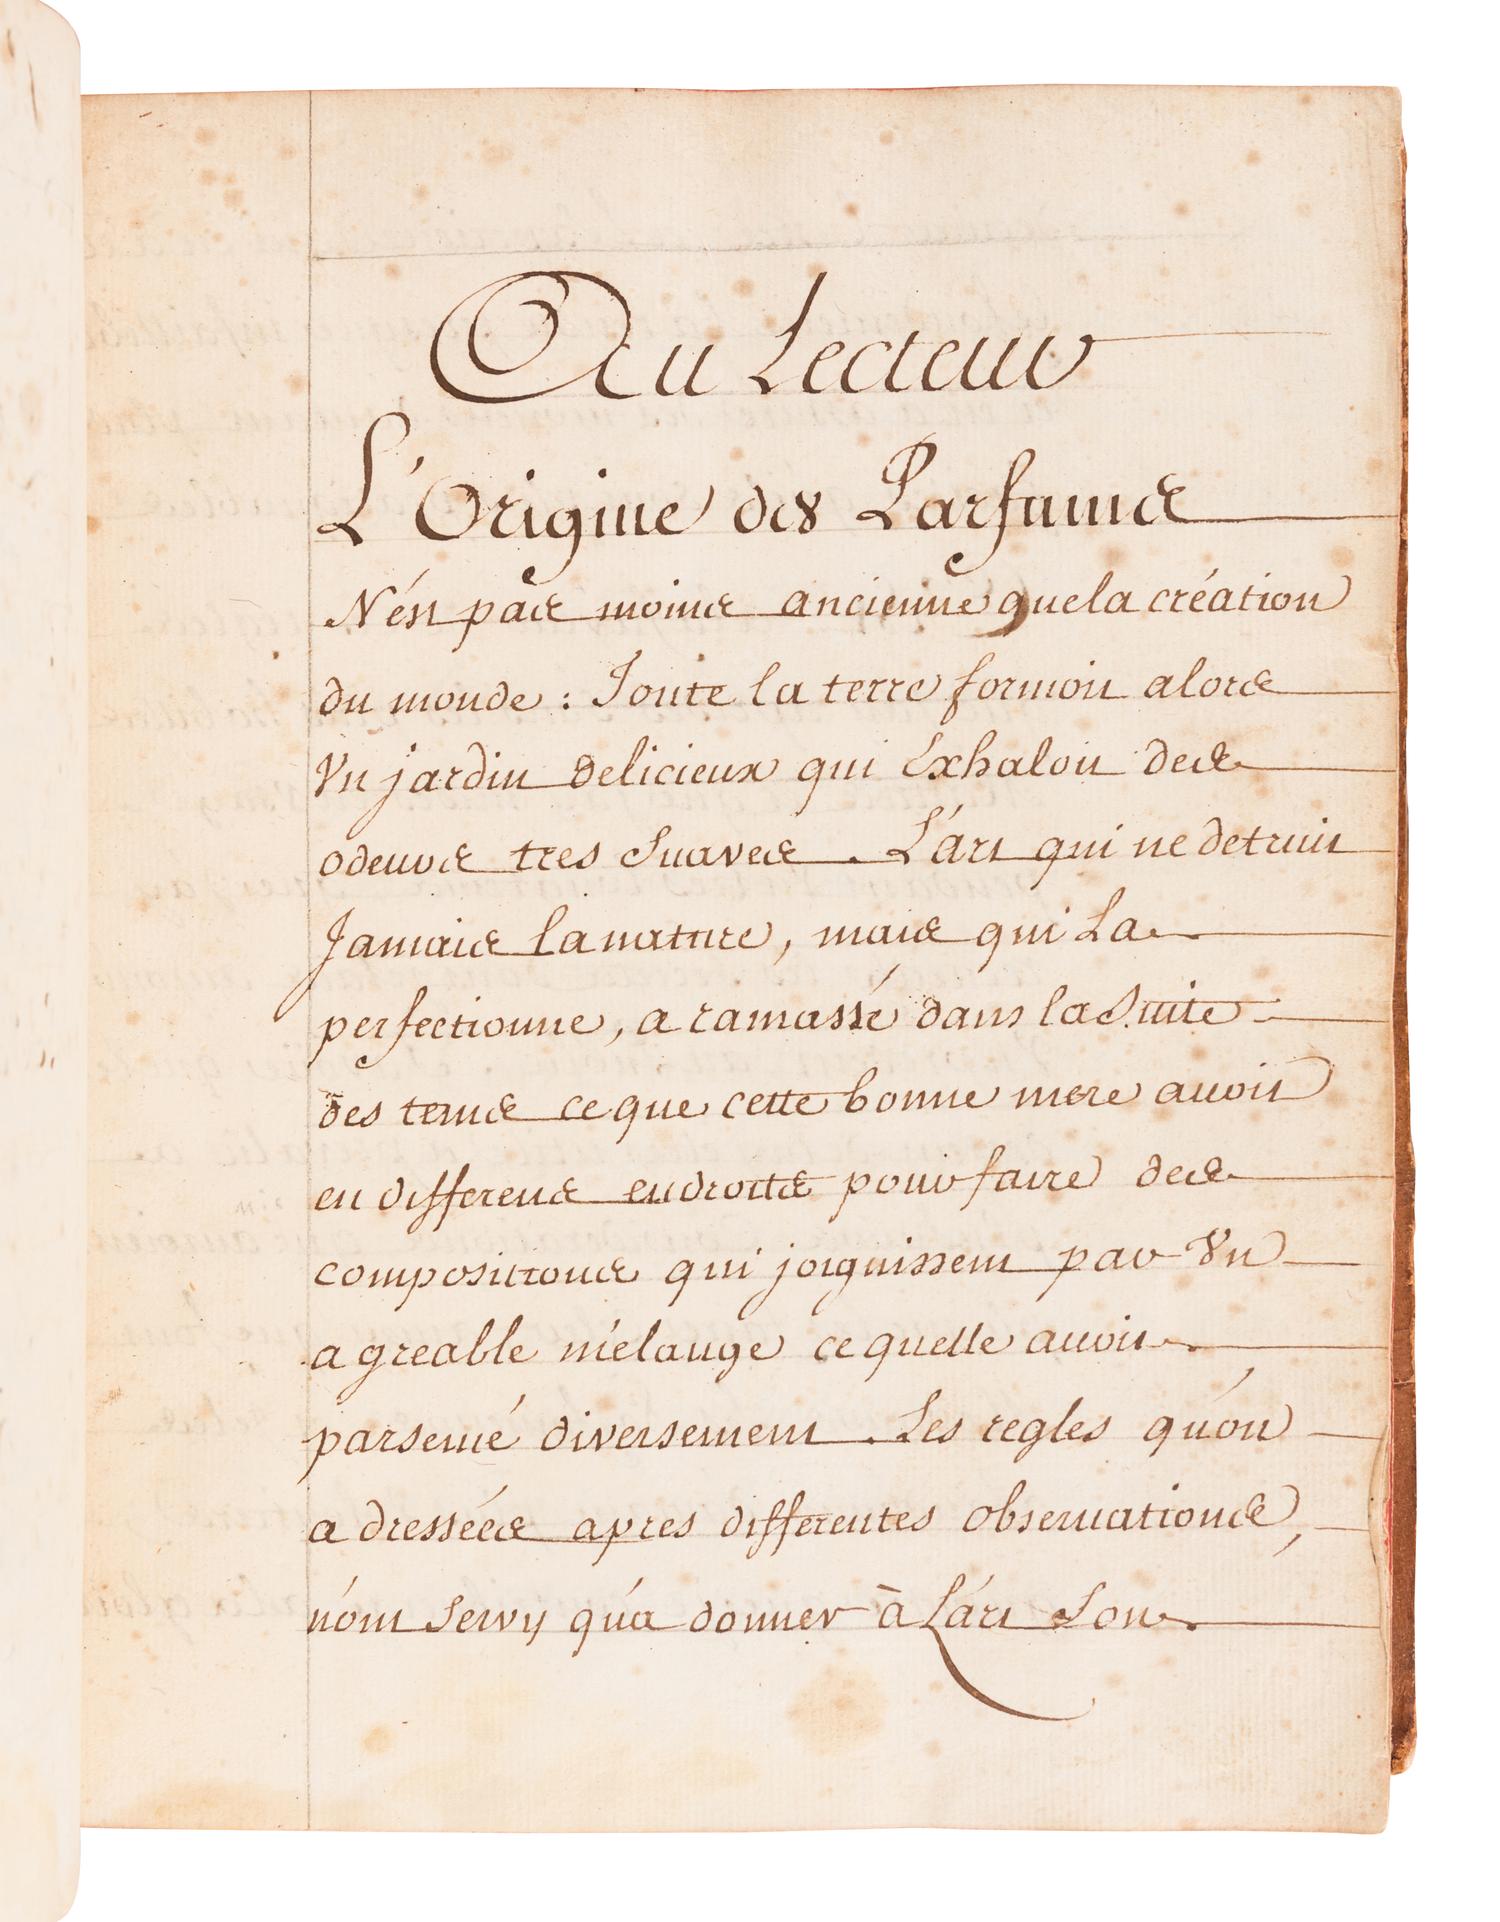 Au Lecteur
L'Origine des Parfums
N'ést pas moins ancienne que la création
du monde : Toute la terre formoit alors
Vn jardin delicieux qui éxhaloit des
odeurs tres Suaves. L'árt qui ne detruit
Jamais la nature, mais qui La
perfectionne, a ramassé dans la Suite
des tems ce que cette bonne mere avoit
en differens endroits pour faire des
compositions qui joignissent par Vn
agreable mélange ce quelle avoit
parsemé diversement. Les regles qu'on
a dressées apres differentes observations,
n'ont Servy qu'a donner à L'árt Son